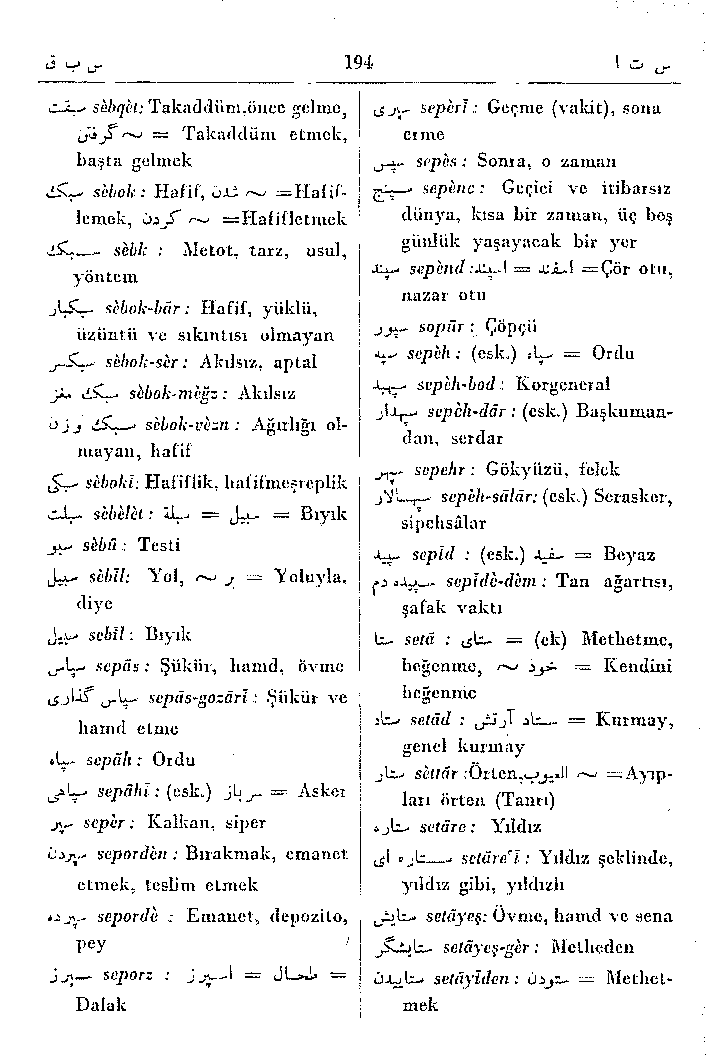 س ب ق
194
س ت ا
سبقت sèbqèt: Takaddüm, önce gelme,
گرفتن ~ = Takaddüm etmek,
başta gelmek
سبک sèbok : Hafif, شدن ~ =Hafif-
lemek, کردن ~ =Hafifletmek
سبک sèbk : Metot, tarz, usul,
yöntem
سبکبار sèbok-bār : Hafif, yüklü,
üzüntü ve sıkıntısı olmayan
سبکسر sèbok-sèr : Akılsız, aptal
سبک مغز sèbok-mèğz : Akılsız
سبک وزن sèbok-vèzn : Ağırlığı ol-
mayan, hafif
سبکی sèbokī: Hafiflik, hafifmeşreplik
سبلت sèbèlèt : سبلة = سبیل = Bıyık
سبو sèbū : Testi
سبیل sèbīl: Yol, ~ بر = Yoluyla,
diye
سبیل sebīl : Bıyık
سپاس sepās : Şükür, hamd, övme
سپاس گذاری sepās-gozārī : Şükür ve
hamd etme
سپاه sepāh : Ordu
سپاهی sepāhī : (esk.) سرباز = Asker
سپر sepèr : Kalkan, siper
سپردن sepordèn : Bırakmak, emanet
etmek, teslim etmek
سپرده sepordè : Emanet, depozito,
pey
سپرز seporz : اسپرز = طحال =
Dalak
سپری sepèrī : Geçme (vakit), sona
erme
سپس sepès : Sonra, o zaman
سپنج sepènc : Geçici ve itibarsız
dünya, kısa bir zaman, üç beş
günlük yaşayacak bir yer
سپند sepènd :اسپند = اسفند =Çör otu,
nazar otu
سپور sopūr : Çöpçü
سپه sepèh : (esk.) سپاه = Ordu
سپهبد sepèh-bod : Korgeneral
سپهدار sepèh-dār : (esk.) Başkuman-
dan, serdar
سپهر sepehr : Gökyüzü, felek
سپهسالار sepèh-sālār: (esk.) Serasker,
sipehsâlar
سپید sepīd : (esk.) سفید = Beyaz
سپیده دم sepīdè-dèm : Tan ağartısı,
şafak vaktı
ستا setā : ستای = (ek) Methetme,
beğenme, خود ~ = Kendini
beğenmic
ستاد setād : ستاد آرتش = Kurmay,
genel kurmay
ستار sèttār :Örten, العیوب ~ =Ayıp-
ları örten (Tanrı)
ستاره setāre : Yıldız
ستاره ای setāre'ī : Yıldız şeklinde,
yıldız gibi, yıldızlı
ستایش setāyeş: Övme, hamd ve sena
ستایشگر setāyeş-gèr : Metheden
ستاییدن setāyīden : ستودن = Methet-
mek